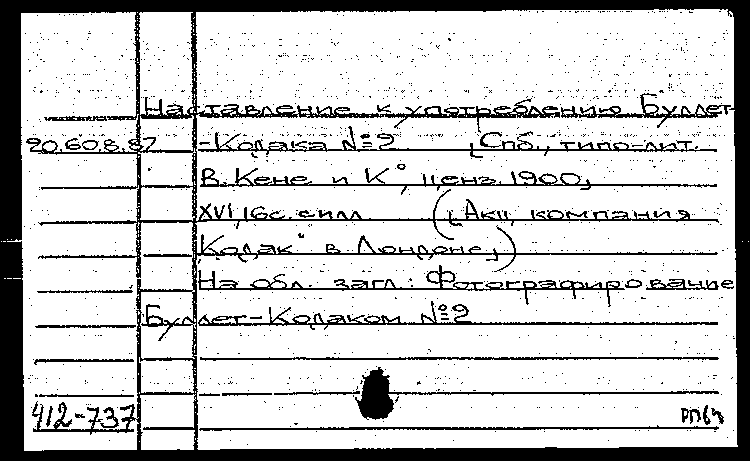 Наставление к употреблению Буллет-
20.60.8.87 -Кодака №2 [Спб., типо-лит.
В. Кене и К°, ценз. 1900]
XVI, 16с. с илл. ([Акц. компания
Кодак" в Лондоне])
На обл. загл.: Фотографирование
Буллет-Кодаком №2
412-737